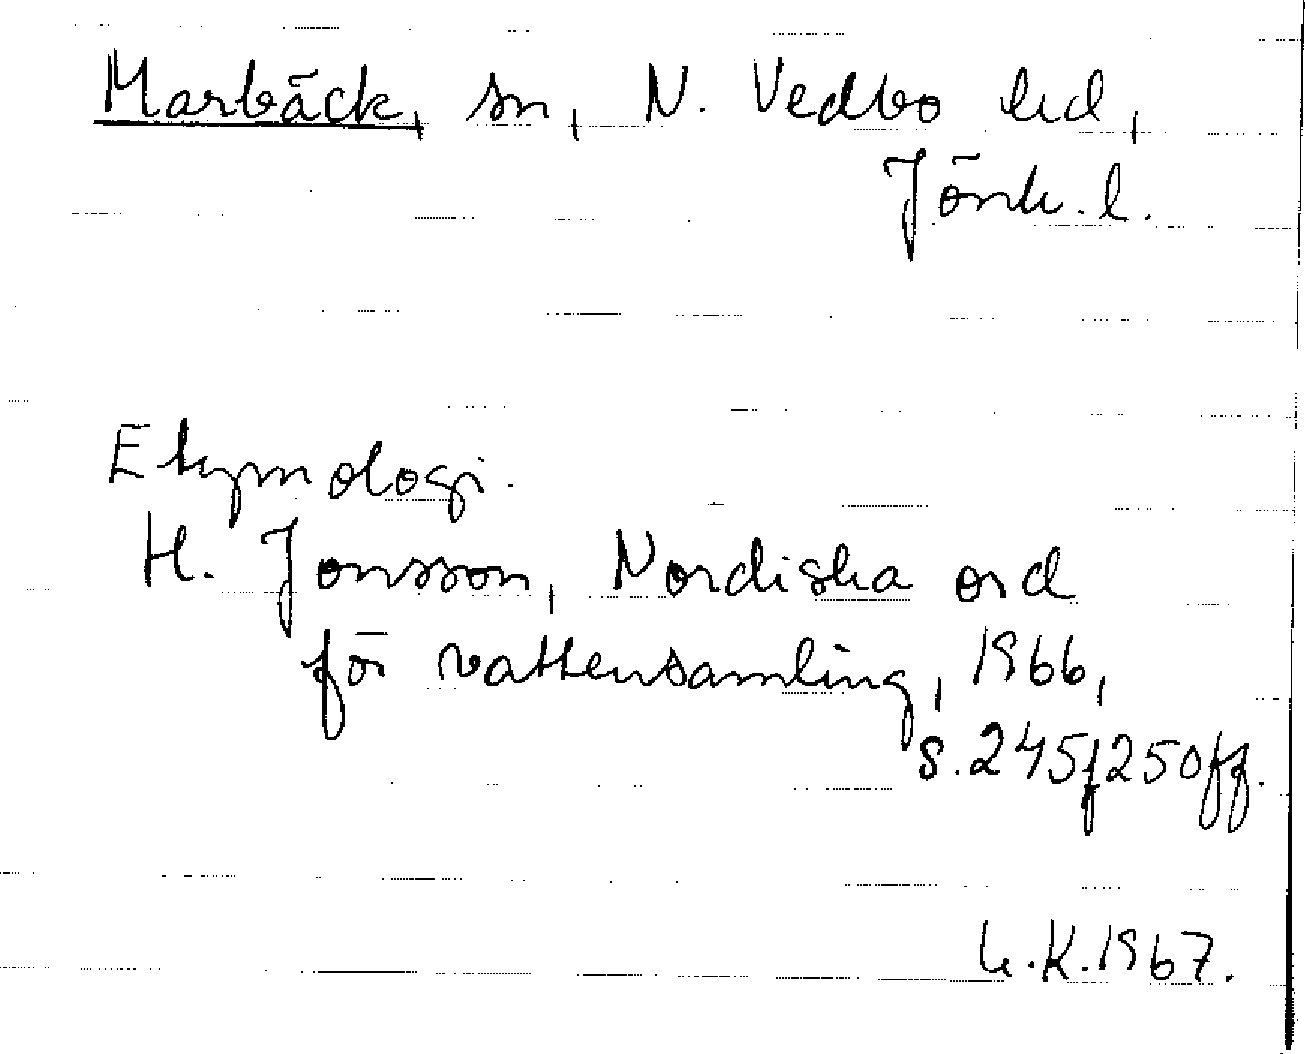 Marbäck, sn, N. Vedbo hd,
Jönk. l.
Etymologi.
H. Jonsson, Nordiska ord
för vattensamling, 1966,
s. 245f 250ff.
K. 1967.